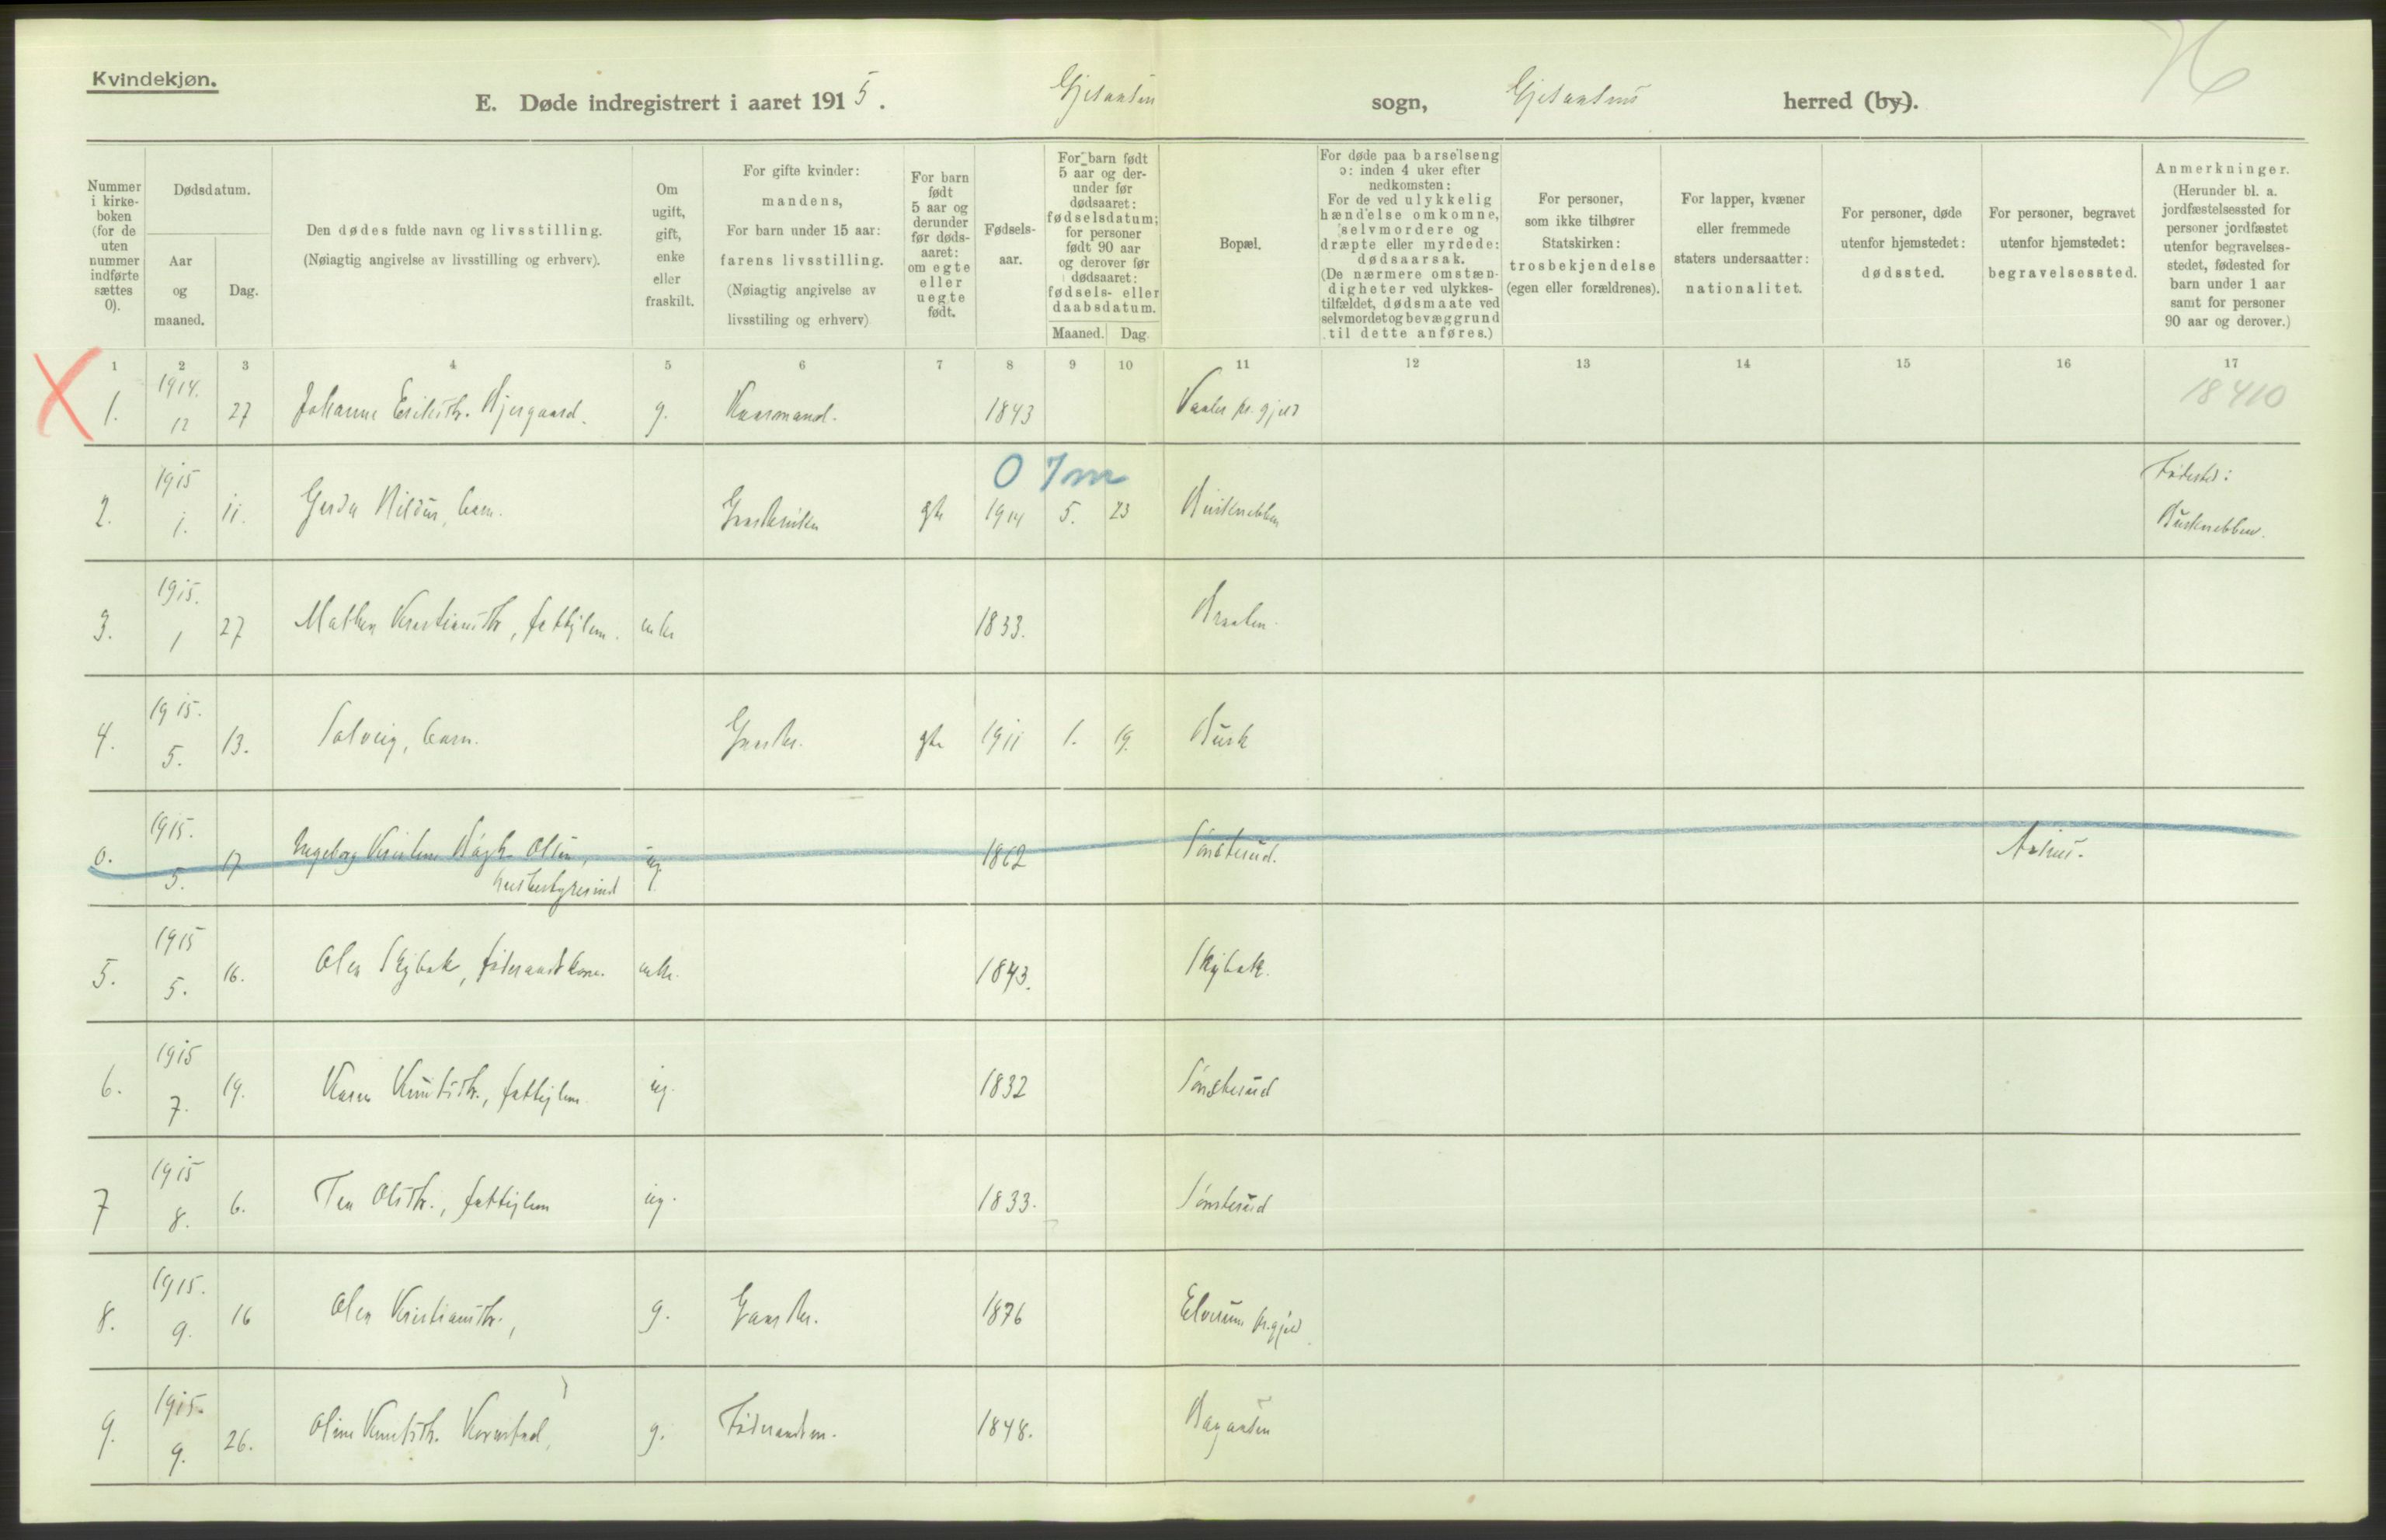 Kvindekjøn.
E. Døde indregistrert i aaret 1915. Gjesaasen sogn, Gjesaasens herred (by).
Nummer i kirkeboken (for de uten nummer indførte sættes 0).
Dødsdatum.
Aar og maaned.
Dag.
Den dødes fulde navn og livsstilling.
(Nøiagtig angivelse av livsstilling og erhverv).
Om ugift, gift, enke eller fraskilt.
For gifte kvinder: mandens,
For barn under 15 aar: farens livsstilling.
(Nøiagtig angivelse av livsstiling og erhverv)
For barn født 5 aar og derunder før dødsaaret: om egte eller uegte født.
Fødselsaar.
For barn født 5 aar og derunder før dødsaaret: fødselsdatum; for personer født 90 aar og derover før dødsaaret: fødsels- eller daabsdatum.
Maaned. Dag.
Bopæl.
For døde paa barselseng ɔ: inden 4 uker efter nedkomsten:
For de ved ulykkelig hændelse omkomne, selvmordere og dræpte eller myrdede: dødsaarsak.
(De nærmere omstændigheter ved ulykkestilfældet, dødsmaate ved selvmordet og bevæggrund til dette anføres.)
For personer, som ikke tilhører Statskirken: trosbekjendelse (egen eller forældrenes).
For lapper, kvæner eller fremmede staters undersaatter: nationalitet.
For personer, døde utenfor hjemstedet: dødssted.
For personer, begravet utenfor hjemstedet: begravelsessted.
Anmerkninger.
(Herunder bl. a. jordfæstelsessted for personer jordfæstet utenfor begravelsesstedet, fødested for barn under 1 aar samt for personer 90 aar og derover.)
1 2 3 4 5 6 7 8 9 10 11 12 13 14 15 16 17
1. 1914. 12 27 Johanne Eriksdtr. g. Kaarmand. 1843 Vaaler pr.gjeld 18410
0 7m
2. 1915 1. 11. Gerda Hildur, barn. gte 1914 5. 23 Busknebben Fødested: Busknebben.
3. 1915. 1 27 Mathea Kristiansdtr, fattiglem. enke 1833. Braaten.
4. 1915. 5. 13. Solveig, barn. Gaardbr. gte 1911 1. 19. Busk
0. 1915. 5. 17 Ingeborg Olsen, husbestyrerind ug. 1862 Sønsterud. Aasnes.
5. 1915 5. 16. Olea Skybak, føderaadskone. enke. 1843. Skybak.
6. 1915 7. 19. Karen Knutsdtr., fattiglem. ug. 1832 Sønsterud
7 1915 8. 6. Tea Olsdtr., fattiglem ug. 1833. Sønsterud
8. 1915. 9. 16 Olea Kristiansdtr., g. Gaardbr. 1876 Elverum pr.gjeld.
9. 1915. 9. 26. Oline Knutsdtr. g. Føderaadsm. 1848. Hagaasen